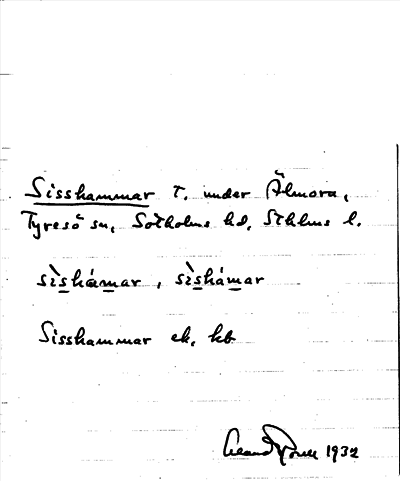 Sisshammar t. under Älmora,
Tyresö sn, Sotholms hd, Sthlms l.
sìshámar, sìshámar
Sisshammar ek. kb
1932